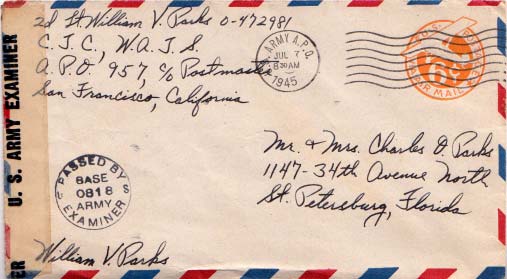 2d Lt. William V. Parks O-472981
C.I.C., W.A.I.S.
A.P.O. 957, c/o Postmaster
San Francisco, California
U. S. ARMY EXAMINER
ARMY A.P.O.
JUL 7
830AM
1945
U.S. POSTAGE
6¢
AIR MAIL
Mr. & Mrs. Charles O. Parks
1147-34th Avenue North
St. Petersburg, Florida
PASSED BY
BASE
0818
ARMY
EXAMINER
William V. Parks
ER